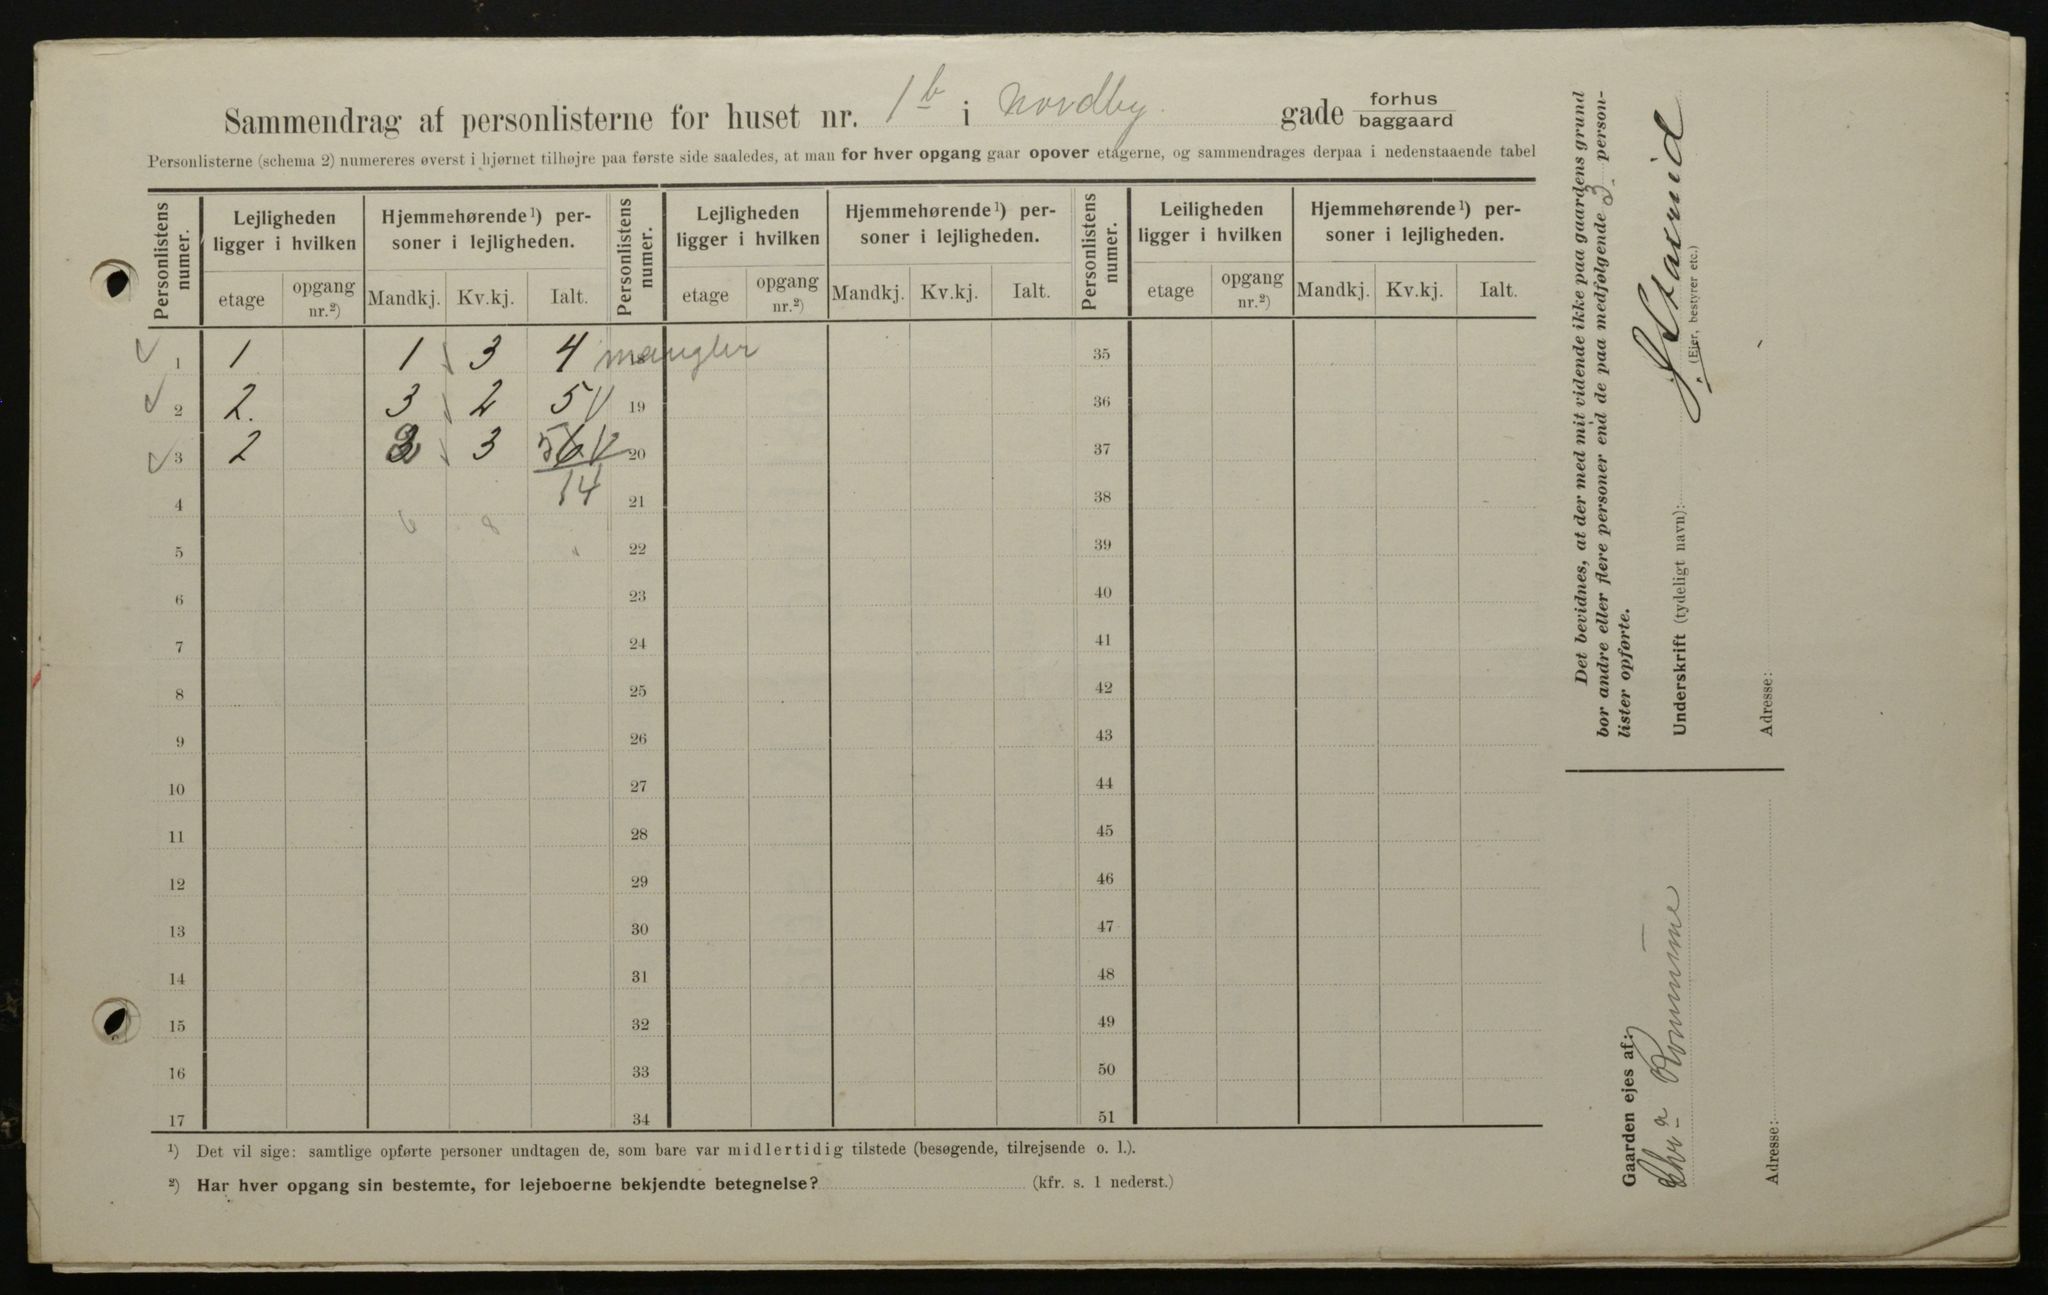 Sammendrag af personlisterne for huset nr. 1b i Nordby gade forhus baggaard
Personlisterne (schema 2) numereres øverst i hjørnet tilhøjre paa første side saaledes, at man for hver opgang gaar opover etagerne, og sammendrages derpaa i nedenstaaende tabel
Personlistens numer. Lejligheden ligger i hvilken Hjemmehørende¹) personer i lejligheden. Personlistens numer. Lejligheden ligger i hvilken Hjemmehørende¹) personer i lejligheden. Personlistens numer. Leiligheden ligger i hvilken Hjemmehørende¹) personer i lejligheden.
etage opgang nr.²) Mandkj. Kv.kj. Ialt. etage opgang nr.²) Mandkj. Kv.kj. Ialt. etage opgang nr.²) Mandkj. Kv.kj. Ialt.
1 1 1 3 4 mangler 18 35
2 2. 3 2 5 19 36
3 2 2 3 5 6 20 37
4 14 21 38
6 8
5 22 39
6 23 40
7 24 41
8 25 42
9 26 43
10 27 44
11 28 45
12 29 46
13 30 47
14 31 48
15 32 49
16 33 50
17 34 51
¹) Det vil sige: samtlige opførte personer undtagen de, som bare var midlertidig tilstede (besøgende, tilrejsende o. l.).
²) Har hver opgang sin bestemte, for lejeboerne bekjendte betegnelse? (kfr. s. 1 nederst.)
Det bevidnes, at der med mit vidende ikke paa gaardens grund
bor andre eller flere personer end de paa medfølgende 3 person-
lister opførte.
Underskrift (tydeligt navn):
(Ejer, bestyrer etc.)
Adresse:
Gaarden ejes af:
Adresse: